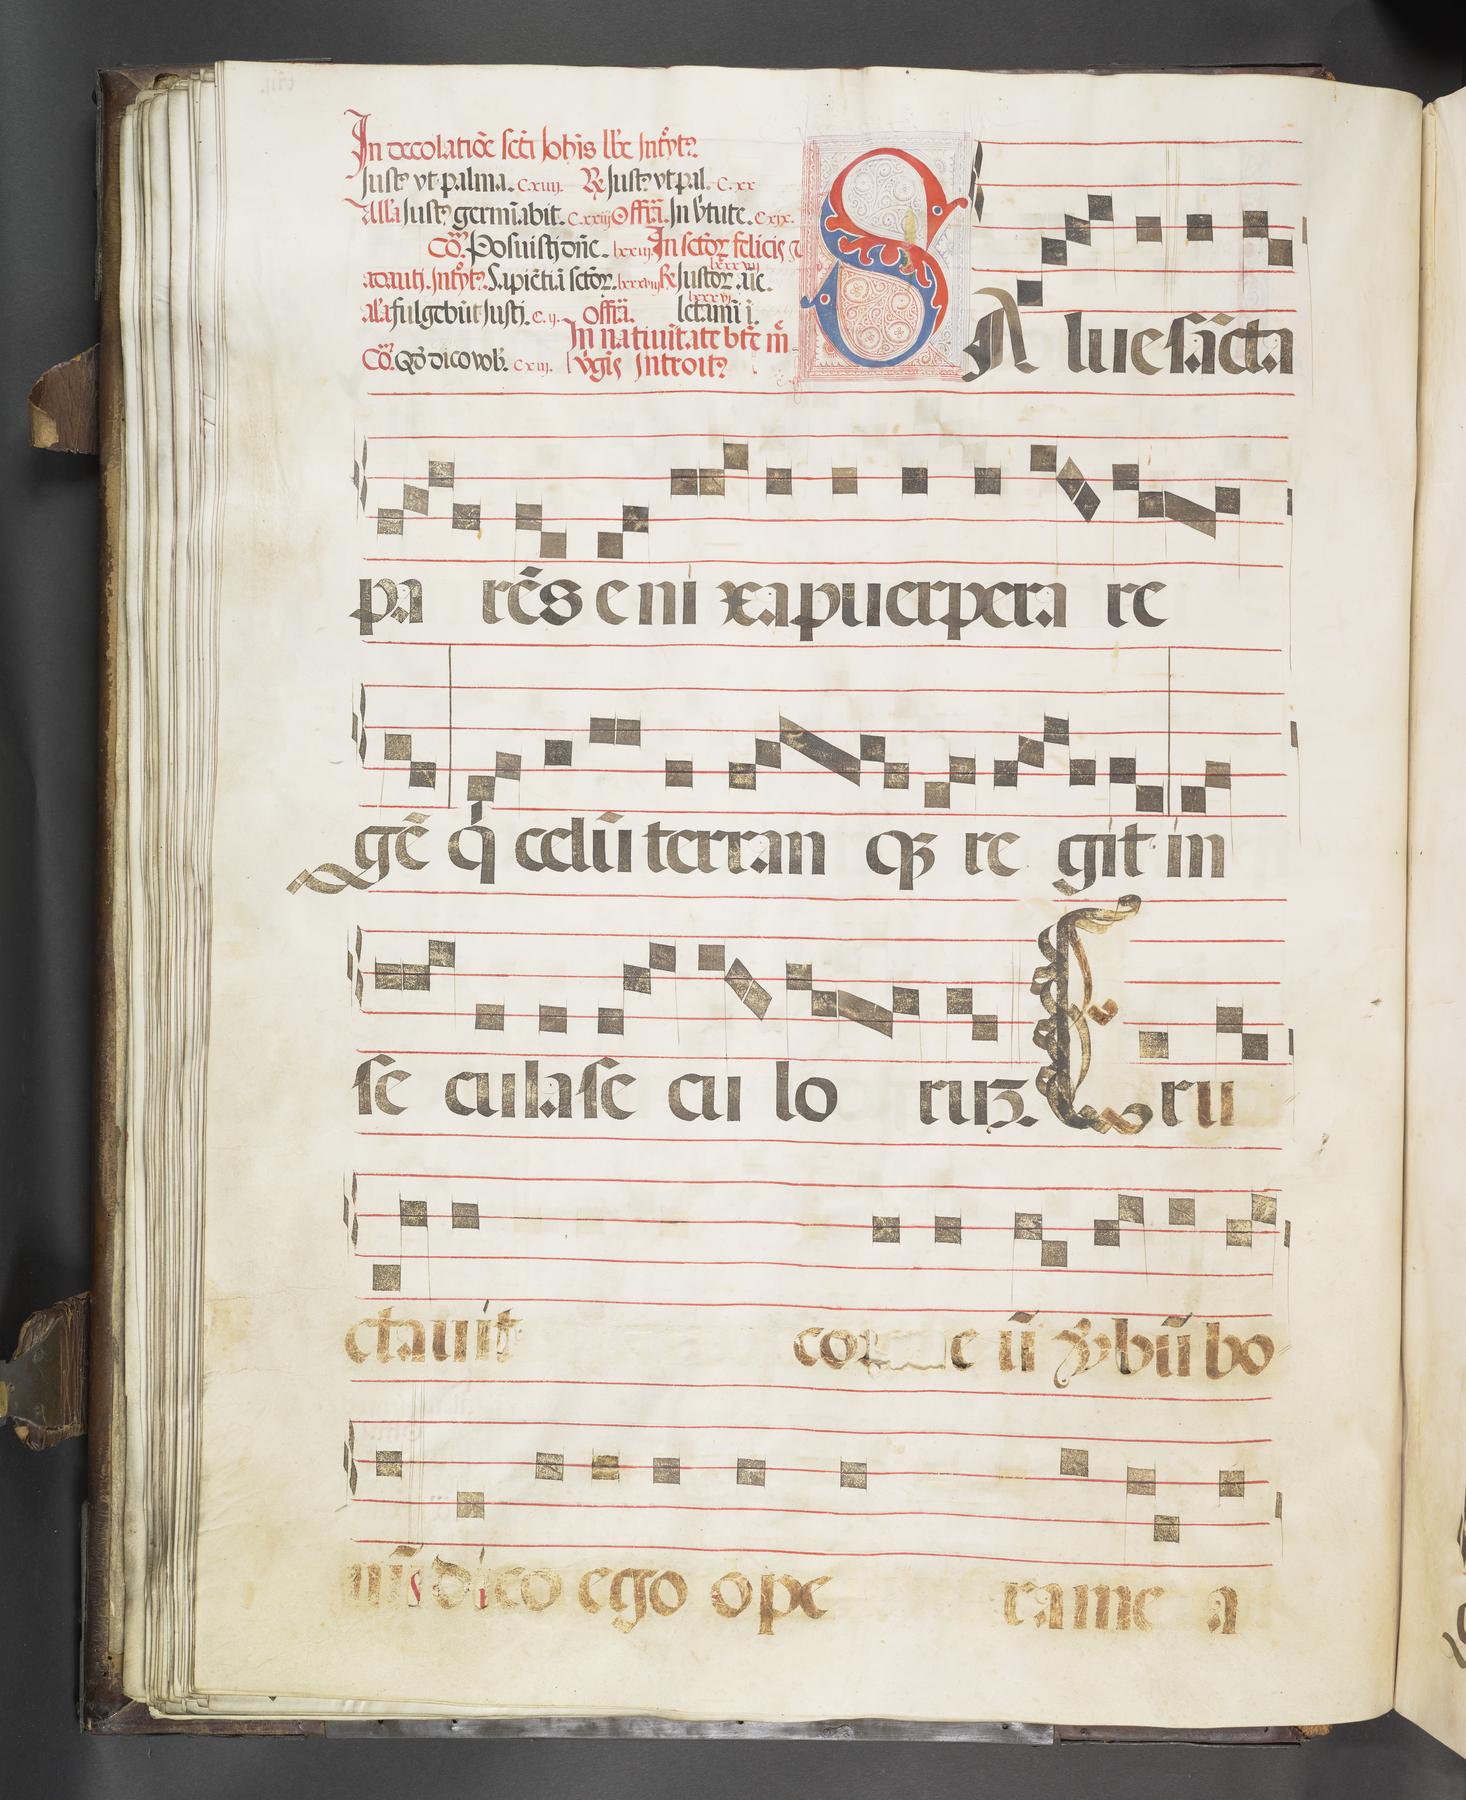 In decolatiōe scti Iohīs bt̄e Introyt᷒
Just᷒ vt palma. C.xiiij. R̃ Just᷒ vt pal. C.xx
Alla Just᷒ germīabit. C.xxiij Offīa. In v̄tute. C.xix.
Cō. Posuisti dn̄e. lxxiij In sctoꝝ felicis ꝫ
adauti. Introyt᷒. Sapiētiā sctoꝝ. lxxxviij R̃ Justoꝝ aīe. lxxxvij
alā fulgebūt Justi. C.ij. Offīa. letamī ī. lxxxvj
Cō. Qd̄ dico vob᷒. Cxiij. In nativitate bt̄e m̄
v̄gīs Introit᷒
SAlue sācta
pa rēs e ni xa puerpera re
gē q̇ celū terram qꝫ re git in
se cula se cu lo ruꝫ. Eru
ctauit cor me ū ꝟbū bo
nū dico ego ope ra me a